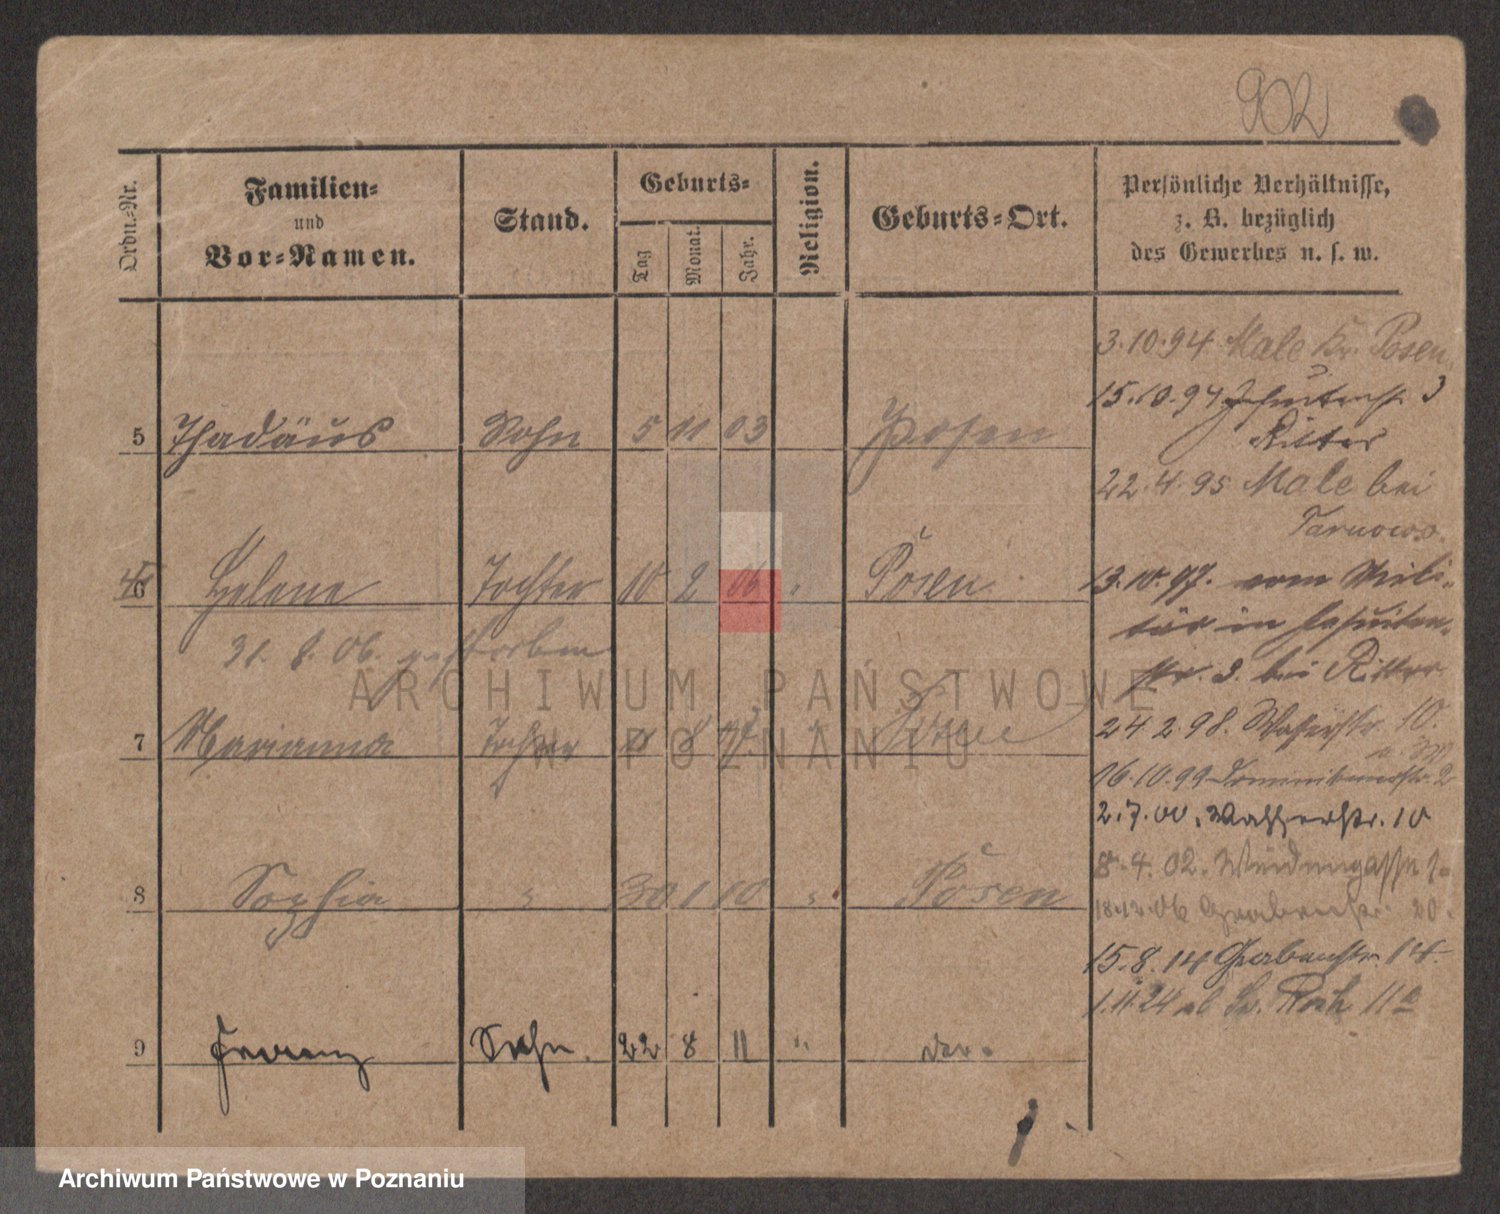 902
Ordn.-Nr.
Familien-
und
Vor-Namen.
Stand.
Geburts-
Tag
Monat.
Jahr.
Religion.
Geburts-Ort.
Persönliche Verhältnisse,
z. B. bezüglich
des Gewerbes u. s. w.
3.10.94 Male Kr. Posen
15.10.94 3
5 Thadäus Sohn 5 11 03 Posen
Ritter
22.4.95 Male bei
Tarnowo.
6 Helene Tochter 10 2 06 " Posen
13.10.97. vom Mili-
tär in Jesuiten-
31. 8. 06. gestorben
str. 3. bei Ritter
24.2.98. Wasserstr. 10.
7 Marianna Tochter 8
16.10.99 Dominikanerstr. 2
2.7.00. Wasserstr. 10
8 Sophia " 30 1 10 " Posen
8.4.02.
18.12.06 Grabenstr. 20.
15.8.14 Grabenstr. 14.
1.11.24 ab Roch 11a
9 Franz Sohn. 22 8 11 "
ARCHIWUM PAŃSTWOWE
W POZNANIU
Archiwum Państwowe w Poznaniu